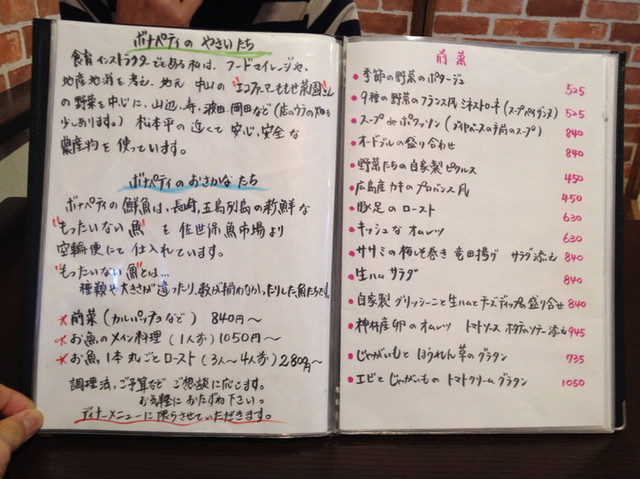 ボナペティの やさいたち
食育インストラクターでもある私は、フードマイレージや、
地産地消を考え、地元 中山の "エコファーマーももせ菜園"さん
の野菜を中心に、山辺、寿、波田、岡田など (店のウラの畑も
少しあります。) 松本平の 近くて 安心、安全な
農産物を 使っています。
ボナペティの おさかなたち
ボナペティの 鮮魚は、長崎、五島列島の新鮮な
"もったいない魚" を 佐世保魚市場より
空輸便にて 仕入れています。
"もったいない魚"とは…
種類や大きさが違ったり、数が揃わなかったりした魚たちです。
* 前菜 (カルパッチョなど) 840円〜
* お魚のメイン料理 (1人前) 1050円〜
* お魚1本丸ごとロースト (3人〜4人前) 2,800円〜
調理法、ご予算など ご相談に応じます。
お気軽に おたずね下さい。
ディナーメニューに限らせていただきます。
前菜
• 季節の野菜のポタージュ 525
• 9種の野菜のフランス風ミネストローネ (スープペイザンヌ) 525
• スープ de ポワッソン (ブイヤベースの手前のスープ) 840
• オードブルの盛り合わせ 840
• 野菜たちの自家製ピクルス 450
• 広島産カキのプロバンス風 450
• 豚足の ロースト 630
• キッシュな オムレツ 630
• ササミの梅しそ巻き 竜田揚げ サラダ添え 840
• 生ハム サラダ 840
• 自家製 グリッシーニと生ハムとチーズディップの盛り合せ 840
• 神林産卵の オムレツ トマトソース ホタテのソテー添え 945
• じゃがいもと ほうれん草のグラタン 735
• エビと じゃがいもの トマトクリームグラタン 1050